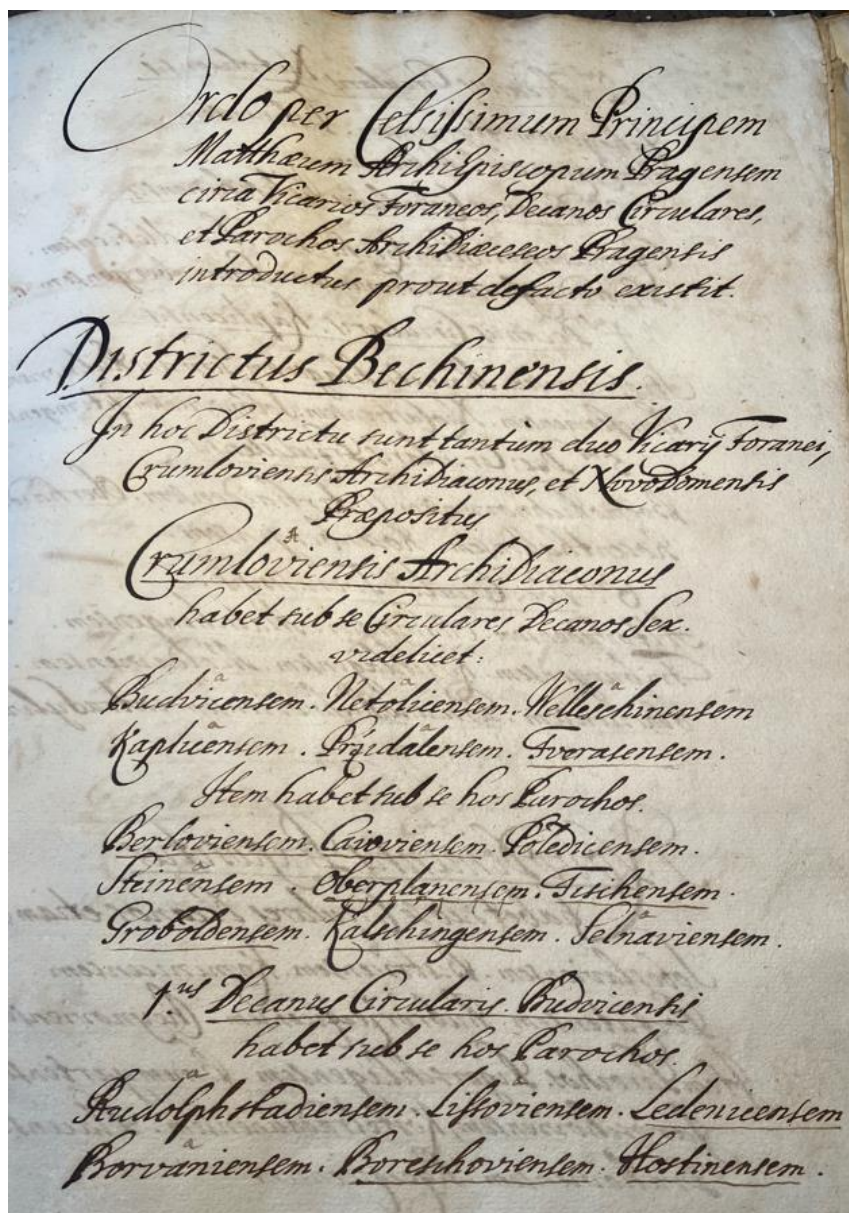 Ordo per Celsissimum Principem
Matthæum ArchiEpiscopum Pragensem
circa Vicarios Foraneos, Decanos Circulares,
et Parochos ArchiDiæceseos Pragensis
introductus prout defacto existit.
Districtus Bechinensis.
In hoc Districtu sunt tantum duo Vicarij Foranei,
Crumloviensis ArchiDiaconus, et NovoDomensis
Præpositus
Crumloviensis ArchiDiaconus
habet sub se Circulares Decanos Sex.
videlicet:
Budvicensem. Netolicensem. Welleschinensem
Kaplicensem. Pridalensem. Tverasensem.
Item habet sub se hos Parochos.
Berloviensem. Caioviensem. Poledicensem.
Steinensem. Oberplanensem. Tischensem.
Groboldensem. Kalschingensem. Selnaviensem.
1.us Decanus Circularis Budvicensis
habet sub se hos Parochos.
Rudolphstadiensem. Lissoviensem. Ledenicensem
Borvaniensem. Boreschoviensem. Hostinensem.